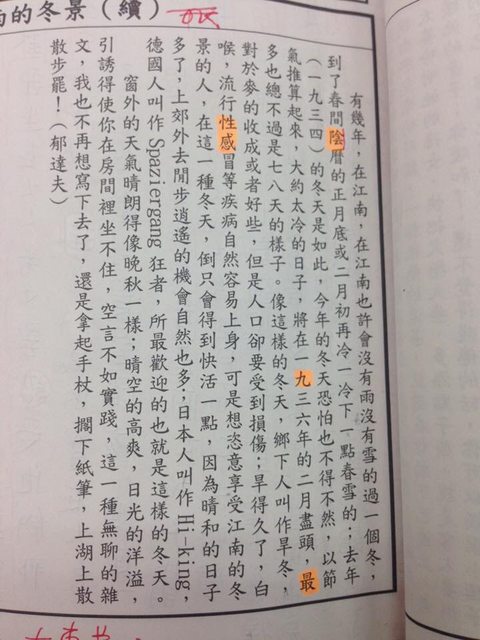 南的冬景（續）
有幾年，在江南，在江南也許會沒有雨沒有雪的過一個冬，
到了春間陰曆的正月底或二月初再冷一冷下一點春雪的；去年
（一九三四）的冬天是如此，今年的冬天恐怕也不得不然，以節
氣推算起來，大約太冷的日子，將在一九三六年的二月盡頭，最
多也總不過是七八天的樣子。像這樣的冬天，鄉下人叫作旱冬，
對於麥的收成或者好些，但是人口卻要受到損傷；旱得久了，白
喉，流行性感冒等疾病自然容易上身，可是想恣意享受江南的冬
景的人，在這一種冬天，倒只會得到快活一點，因為晴和的日子
多了，上郊外去閒步逍遙的機會自然也多；日本人叫作Hi-king，
德國人叫作Spaziergang狂者，所最歡迎的也就是這樣的冬天。
窗外的天氣晴朗得像晚秋一樣；晴空的高爽，日光的洋溢，
引誘得使你在房間裡坐不住，空言不如實踐，這一種無聊的雜
文，我也不再想寫下去了，還是拿起手杖，擱下紙筆，上湖上散
散步罷！（郁達夫）